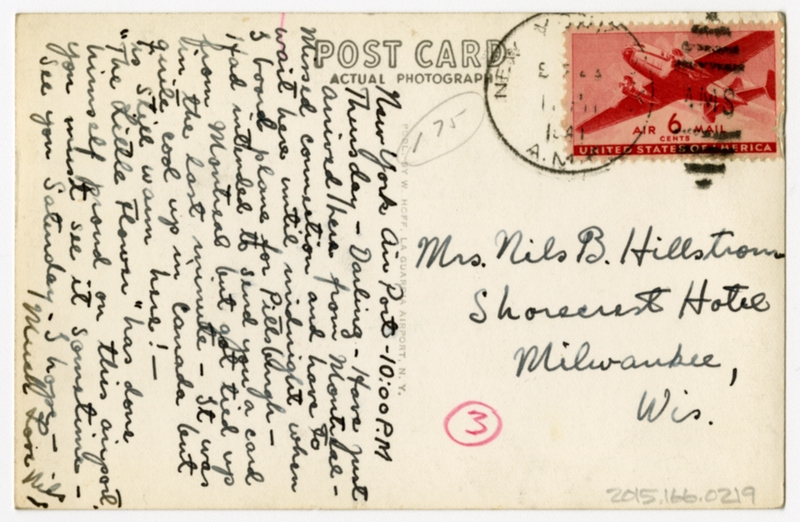 POST CARD
ACTUAL PHOTOGRAPH
175
1941
A.M.
AIR 6 MAIL
CENTS
UNITED STATES OF AMERICA
New York Air Port - 10:00 P.M
Thursday - Darling - Have just
arrived here from Montreal -
Missed connection and have to
wait here until midnight when
I board plane for Pittsburgh -
I had intended to send you a card
from Montreal but got tied up
in the last minute - It was
quite cool up in Canada but
its still warm here! -
"The Little Flower" has done
himself proud on this airport.
You must see it sometime -
See you Saturday - I hope -
Much Love Nils
W. HOFF, LA GUARDIA AIRPORT, N. Y.
Mrs. Nils B. Hillstrom
Shorecrest Hotel
Milwaukee,
Wis.
3
2015.166.0219